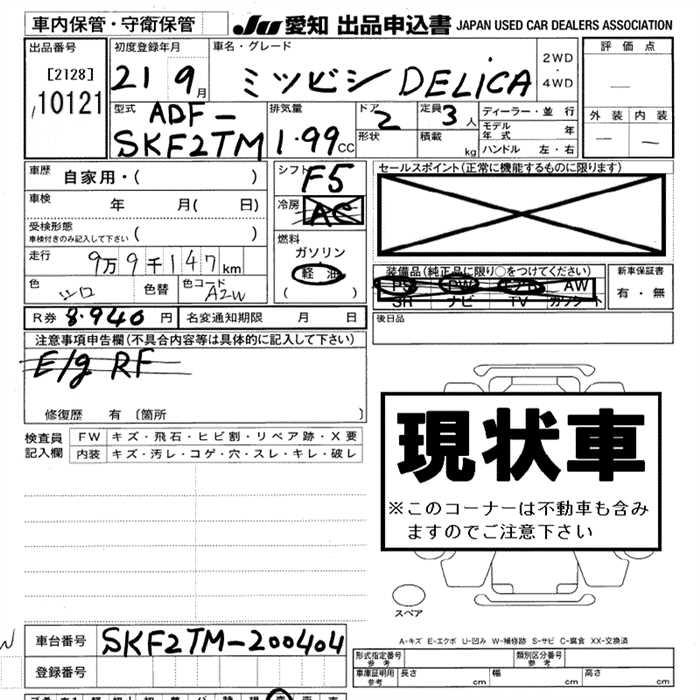 車内保管・守衛保管 JU 愛知 出品申込書 JAPAN USED CAR DEALERS ASSOCIATION
出品番号 初度登録年月 車名・グレード 評価点
[2128] 21 9月 ミツビシ DELiCA 2WD ・ 4WD
10121
型式 ADF- SKF2TM 排気量 1.99CC ドア 2 定員 3人 ディーラー・並行 外装 内装
形状 積載 kg モデル年式 年
ハンドル 左・右
車歴 自家用・( ) シフト F5 セールスポイント(正常に機能するものに限ります)
車検 年 月( 日) 冷房 AC
受検形態 ( )
車検付きのみ記入して下さい
燃料 ガソリン
走行 9万9千147km 軽油 装備品(純正品に限り○をつけてください) 新車保証書
色 シロ 色替 色コード A2W ( ) PS PW エアB AW 有・無
SR ナビ TV カワシート
R券 8.940円 名変通知期限 月 日 後日品
注意事項申告欄(不具合内容等は具体的に記入して下さい)
E/g RF
修復歴 有 〔箇所 〕
検査員 FW キズ・飛石・ヒビ割・リペア跡・X要
記入欄 内装 キズ・汚レ・コゲ・穴・スレ・キレ・破レ
現状車
※このコーナーは不動車も含み
ますのでご注意下さい
スペア
A-キズ E-エクボ U-凹み W-補修跡 S-サビ C-腐食 XX-交換済
車台番号 SKF2TM-200404
登録番号
形式指定番号 参考 類別区分番号 参考
車庫証明用 参考 長さ cm 幅 cm 高さ cm